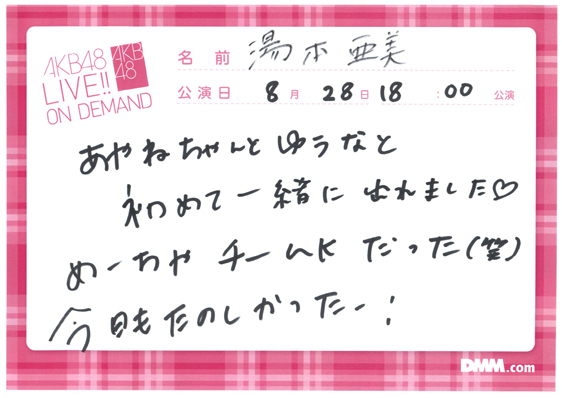 AKB48
LIVE!!
ON DEMAND
AKB
48
名前 湯本亜美
公演日 8月 28日 18:00 公演
あやねちゃんとゆうなと
初めて一緒に出れました♡
めーちゃチームK だった(笑)
今日もたのしかったー!
DMM.com